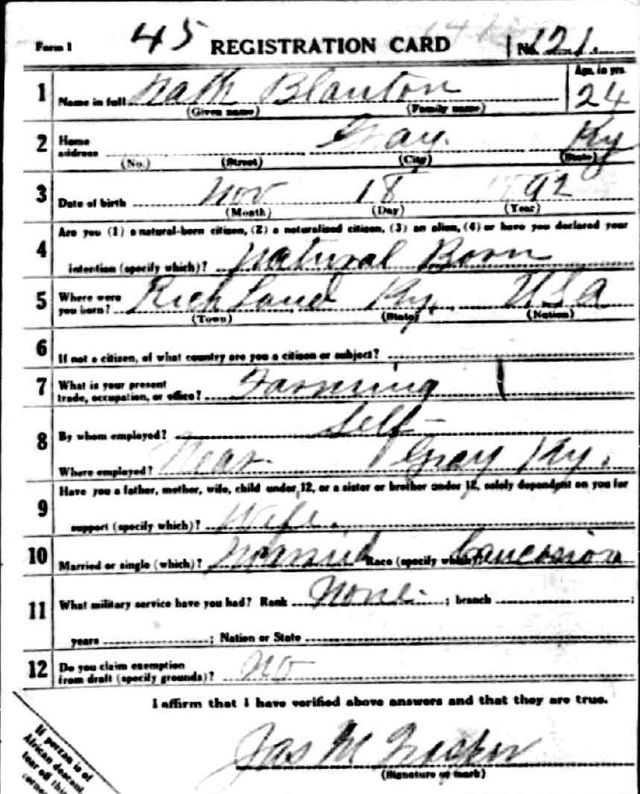 Form 1 45 REGISTRATION CARD No. 121.
1 Name in full Nath Blanton Age, in yrs. 24
(Given name) (Family name)
2 Home address Gray. Ky
(No.) (Street) (City) (State)
3 Date of birth Nov 18 92
(Month) (Day) (Year)
Are you (1) a natural-born citizen, (2) a naturalized citizen, (3) an alien, (4) or have you declared your
4 intention (specify which)? Natural Born
5 Where were you born? Rich Land Ky. USA
(Town) (State) (Nation)
6 If not a citizen, of what country are you a citizen or subject?
7 What is your present trade, occupation, or office? Farming
8 By whom employed? Self
Where employed? Near Gray Ky.
Have you a father, mother, wife, child under 12, or a sister or brother under 12, solely dependent on you for
9 support (specify which)? Wife.
10 Married or single (which)? Married Race (specify which)? Caucasion
11 What military service have you had? Rank None. ; branch ;
years ; Nation or State
12 Do you claim exemption from draft (specify grounds)? No
I affirm that I have verified above answers and that they are true.
Jas M
(Signature or mark)
If person is of
African descent,
tear off this
corner